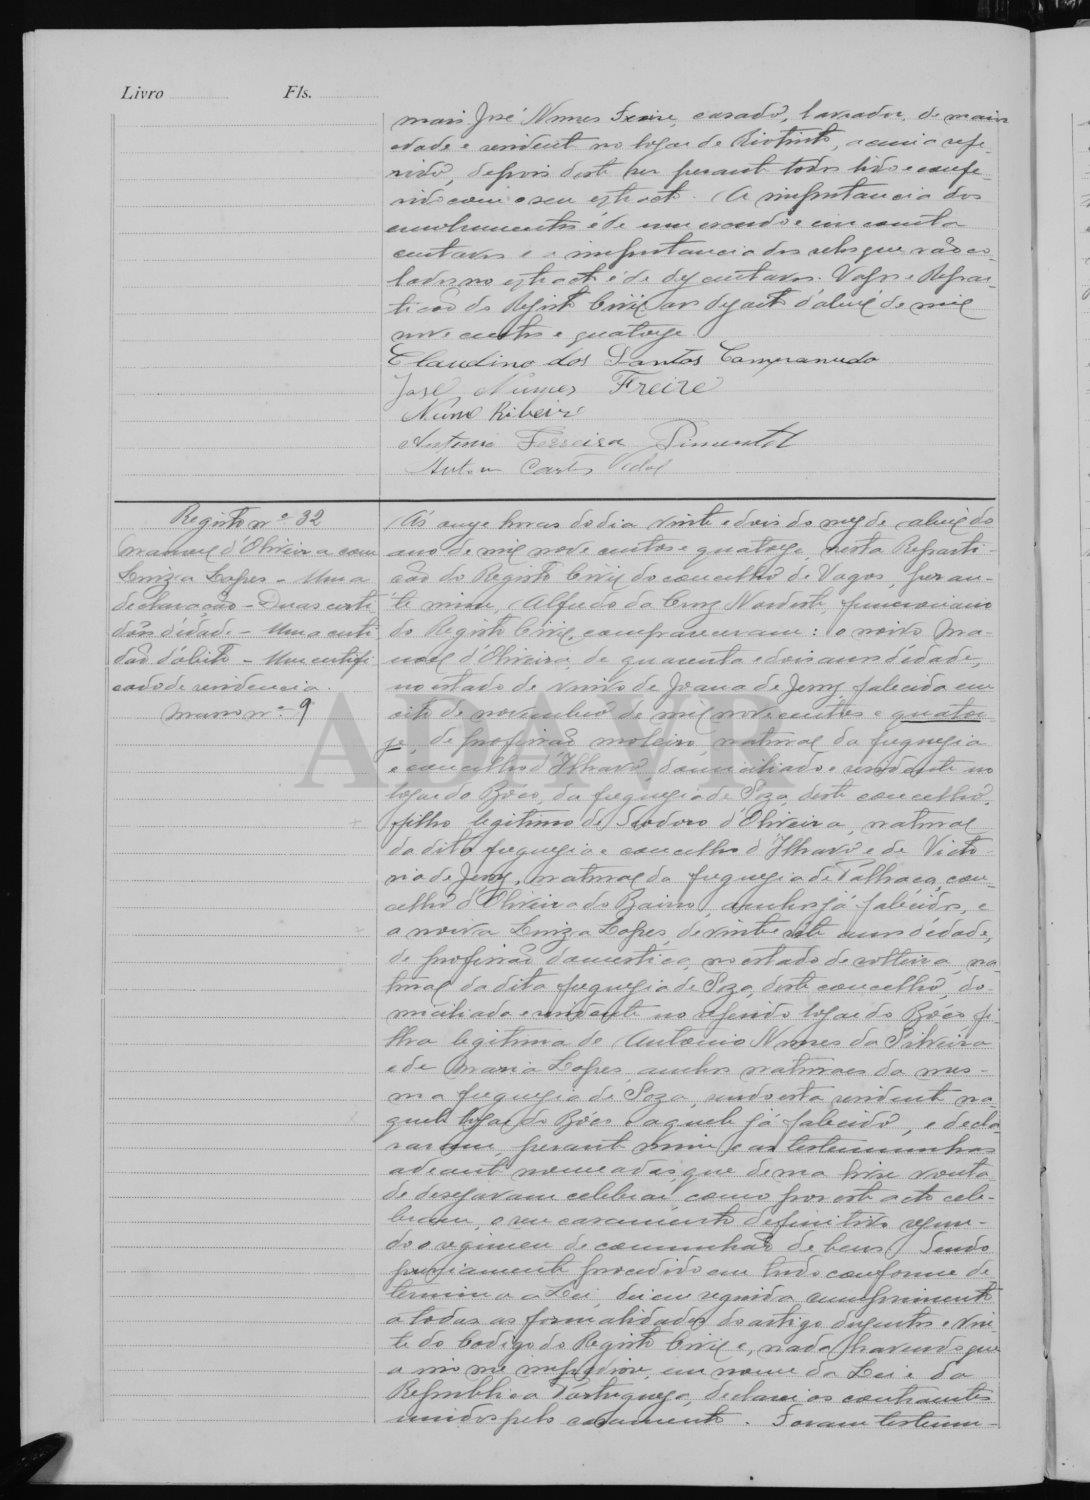 Livro Fls.
mais José Nunes Freire, casado, lavrador, de maior
edade e residente no logar de Riotinto, acima refe-
rido, depois deste ser perante todos lido e confe-
rido com o seu extracto. A importancia dos
emolumentos é de um escudo e cincoenta
centavos e a importancia dos selos que vão co-
lados no extracto é de dez centavos. Vagos e Repar-
tição do Registo Civil aos dezaseis d'abril de mil
nove centos e quatorze
Claudino dos Santos
José Nunes Freire
Nuno Ribeiro
Antonio Ferreira Pimentel
Vidal
Registo nº 32
Manoel d'Oliveira com
Luiza Lopes - Uma
declaração - Duas certi-
dões d'idade. - Uma certi-
dão d'óbito - Um certifi-
cado de residencia.
Maço nº 9
Ás onze horas do dia vinte e dois do mez de abril do
ano de mil nove centos e quatorze, nesta Reparti-
ção do Registo Civil do concelho de Vagos, peran-
te mim, Alfredo da Cruz Nordeste, funcionario
do Registo Civil, compareceram: o noivo Ma-
noel d'Oliveira, de quarenta e dois anos d'edade,
no estado de viuvo de Joana de Jesus, falecida em
oito de novembro de mil nove centos e quator-
ze, de profissão moleiro, natural da freguezia
e concelho d'Ilhavo, domiciliado e residente no
logar do Bôco, da freguezia de Soza, deste concelho,
filho legitimo de Teodoro d'Oliveira, natural
da dita freguezia e concelho d'Ilhavo e de Victo-
ria de Jesus, natural da freguezia de Palhaça, con-
celho d'Oliveira do Bairro, ambos já falecidos, e
a noiva Luiza Lopes, de vinte e sete anos d'edade,
de profissão domestica, no estado de solteira, na-
tural da dita freguezia de Soza, deste concelho, do-
miciliada e residente no referido logar do Bôco fi-
lha legitima de Antonio Nunes da Silveira
e de Maria Lopes, ambos naturaes da mes-
ma freguezia de Soza, sendo esta residente na-
quele logar do Bôco e aquele já falecido, e decla-
raram, perante mim e as testemunhas
adeante nomeadas, que de sua livre vonta-
de desejavam celebrar como por este acto cele-
bram, o seu casamento definitivo segun-
do o regimen de communhão de bens. Tendo
previamente procedido em tudo conforme de-
termina a Lei, dei em seguida cumprimento
a todas as formalidades do artigo duzentos e vin-
te do Codigo do Registo Civil e, nada havendo que
a isso me impedisse, em nome da Lei e da
Republica Portugueza, declarei os contraentes
unidos pelo casamento. Foram testemu-
ADAVR